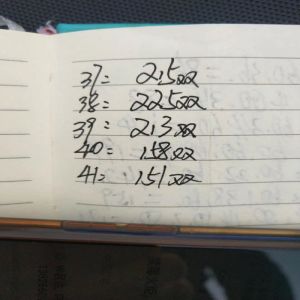 37= 215双
38= 225双
39= 213双
40= 158双
41= 151双